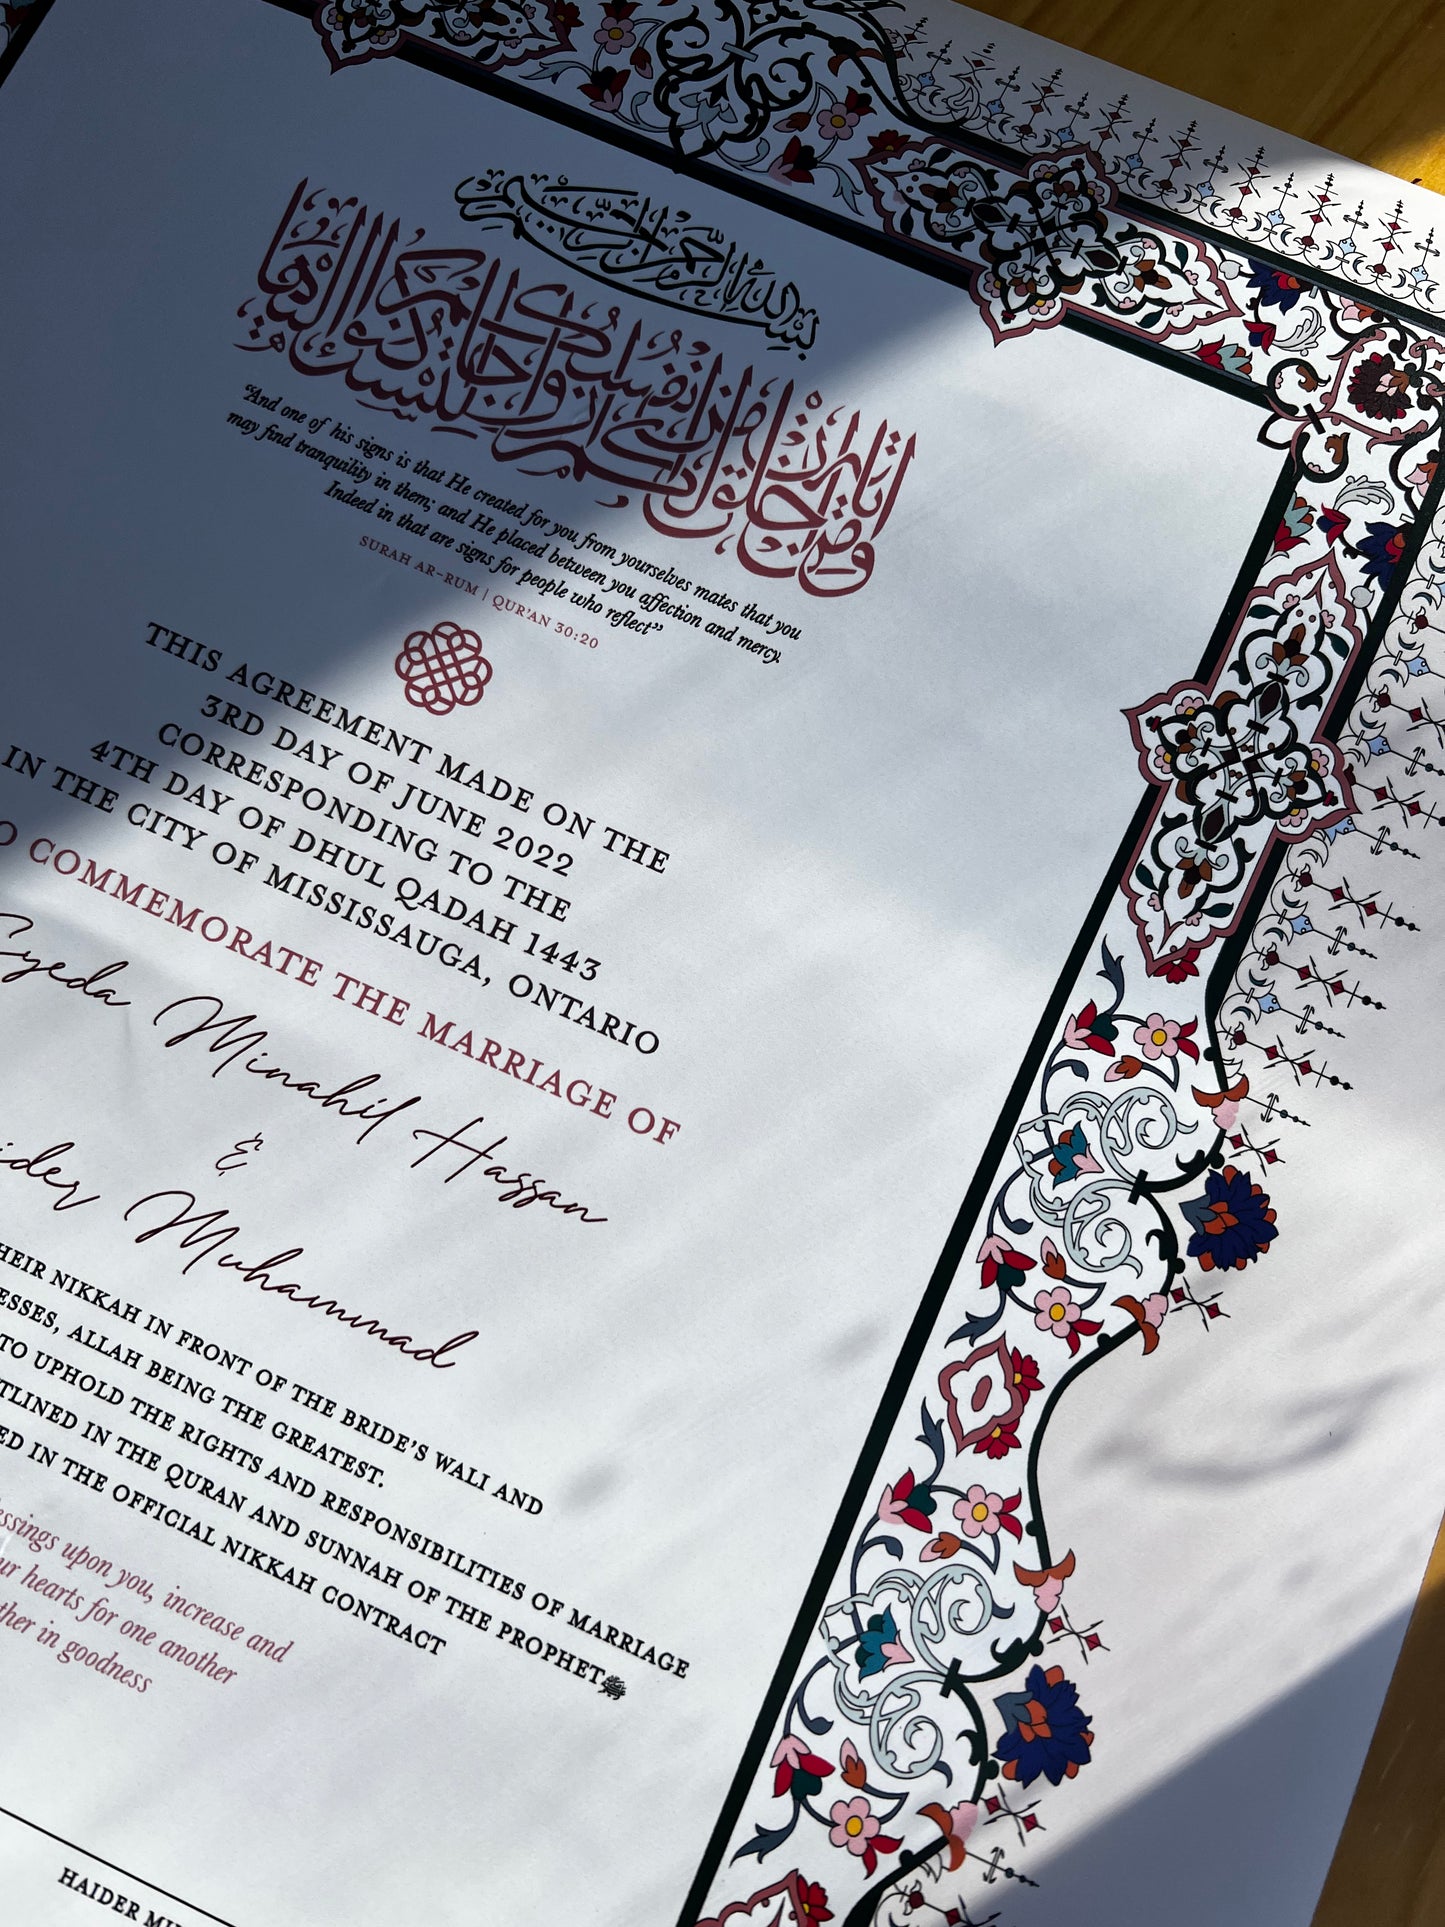 بِسْمِ اللهِ الرَّحْمٰنِ الرَّحِيمِ
ومن آياته أن خلق لكم من أنفسكم أزواجا لتسكنوا إليها
“And one of his signs is that He created for you from yourselves mates that you
may find tranquility in them; and He placed between you affection and mercy.
Indeed in that are signs for people who reflect”
SURAH AR-RUM | QUR'AN 30:20
THIS AGREEMENT MADE ON THE
3RD DAY OF JUNE 2022
CORRESPONDING TO THE
4TH DAY OF DHUL QADAH 1443
IN THE CITY OF MISSISSAUGA, ONTARIO
O COMMEMORATE THE MARRIAGE OF
Syeda Minahil Hassan
&
ider Muhammad
HEIR NIKKAH IN FRONT OF THE BRIDE'S WALI AND
ESSES, ALLAH BEING THE GREATEST.
TO UPHOLD THE RIGHTS AND RESPONSIBILITIES OF MARRIAGE
TLINED IN THE QURAN AND SUNNAH OF THE PROPHETﷺ
ED IN THE OFFICIAL NIKKAH CONTRACT
essings upon you, increase and
ur hearts for one another
ther in goodness
HAIDER MU